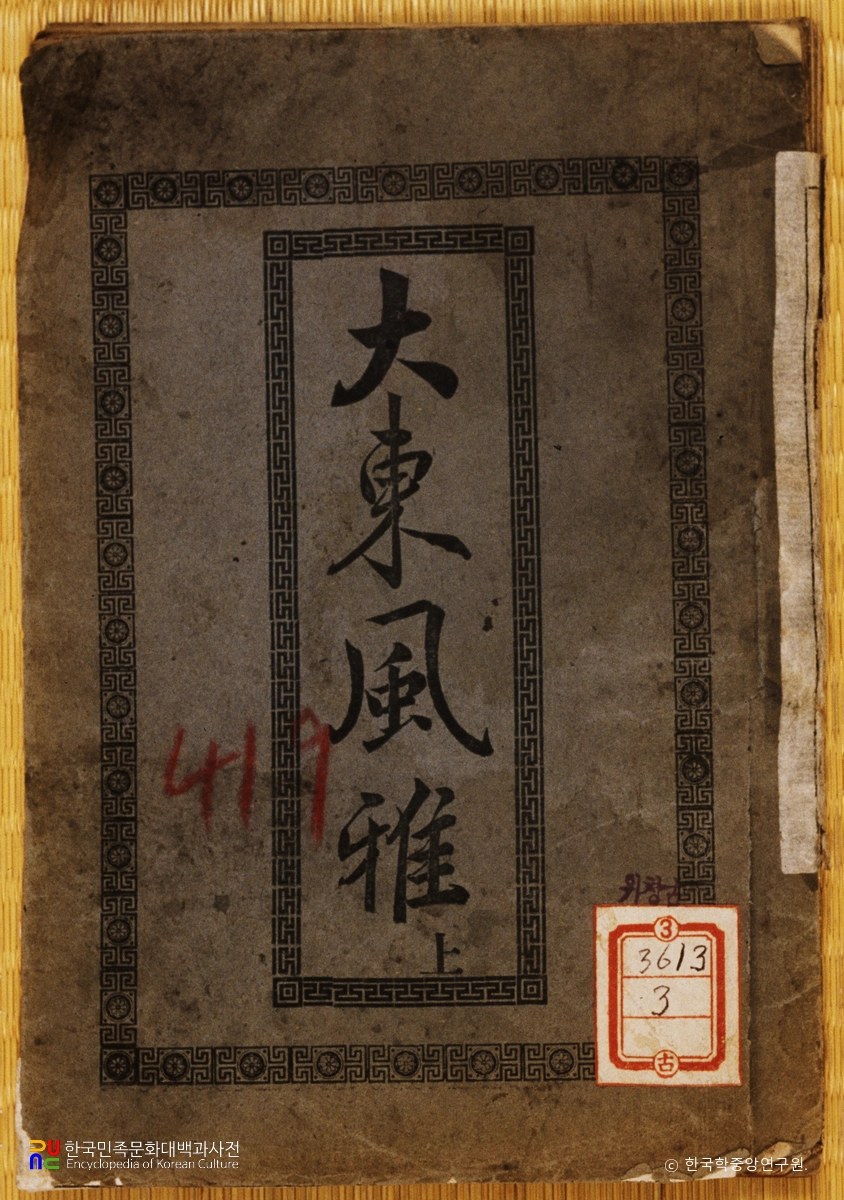 大東風雅
上
419
위창古
③
3613
3
古
한국민족문화대백과사전
Encyclopedia of Korean Culture
© 한국학중앙연구원